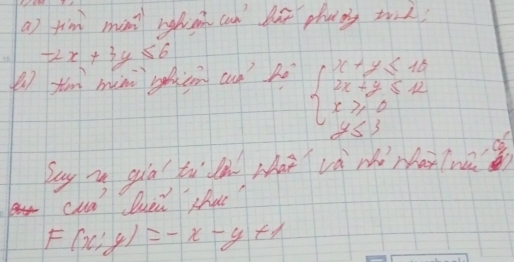 a) tìm miền nghiệm của bất phương trình:
-2x + 3y ≤ 6
b) tìm miền nghiệm của hệ { x + y ≤ 10
2x + y ≤ 12
x ≥ 0
y ≤ 3
Suy ra giá trị lớn nhất và nhỏ nhất (nếu có)
của biểu thức
F(x; y) = -x - y + 1